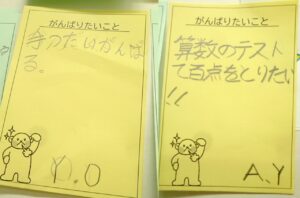 がんばりたいこと
手つだいがんば
る。
がんばりたいこと
算数のテスト
で百点をとりたい
!!
A.Y